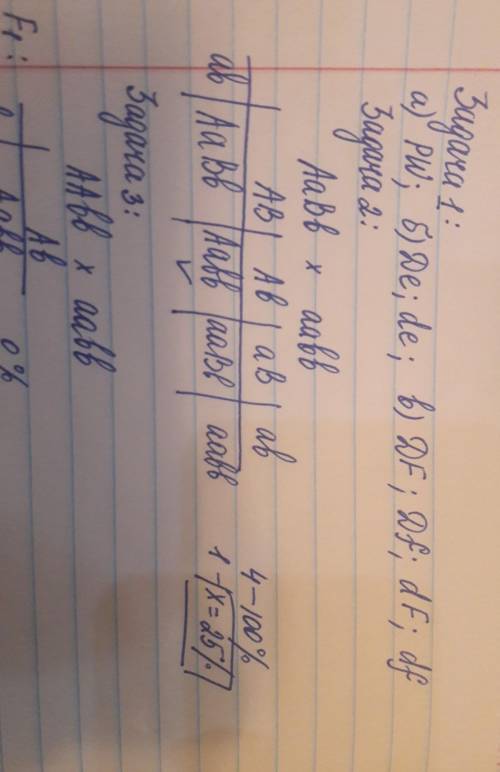 Задача 1:
а) PW; б) De; de; в) DF; Df; dF; df
Задача 2:
AaBb x aabb
AB | Ab | aB | ab
ab | AaBb | Aabb | aaBb | aabb
✓
4 – 100%
1 – x = 25%
Задача 3:
AAbb x aabb
Ab
F1: Aabb 0%